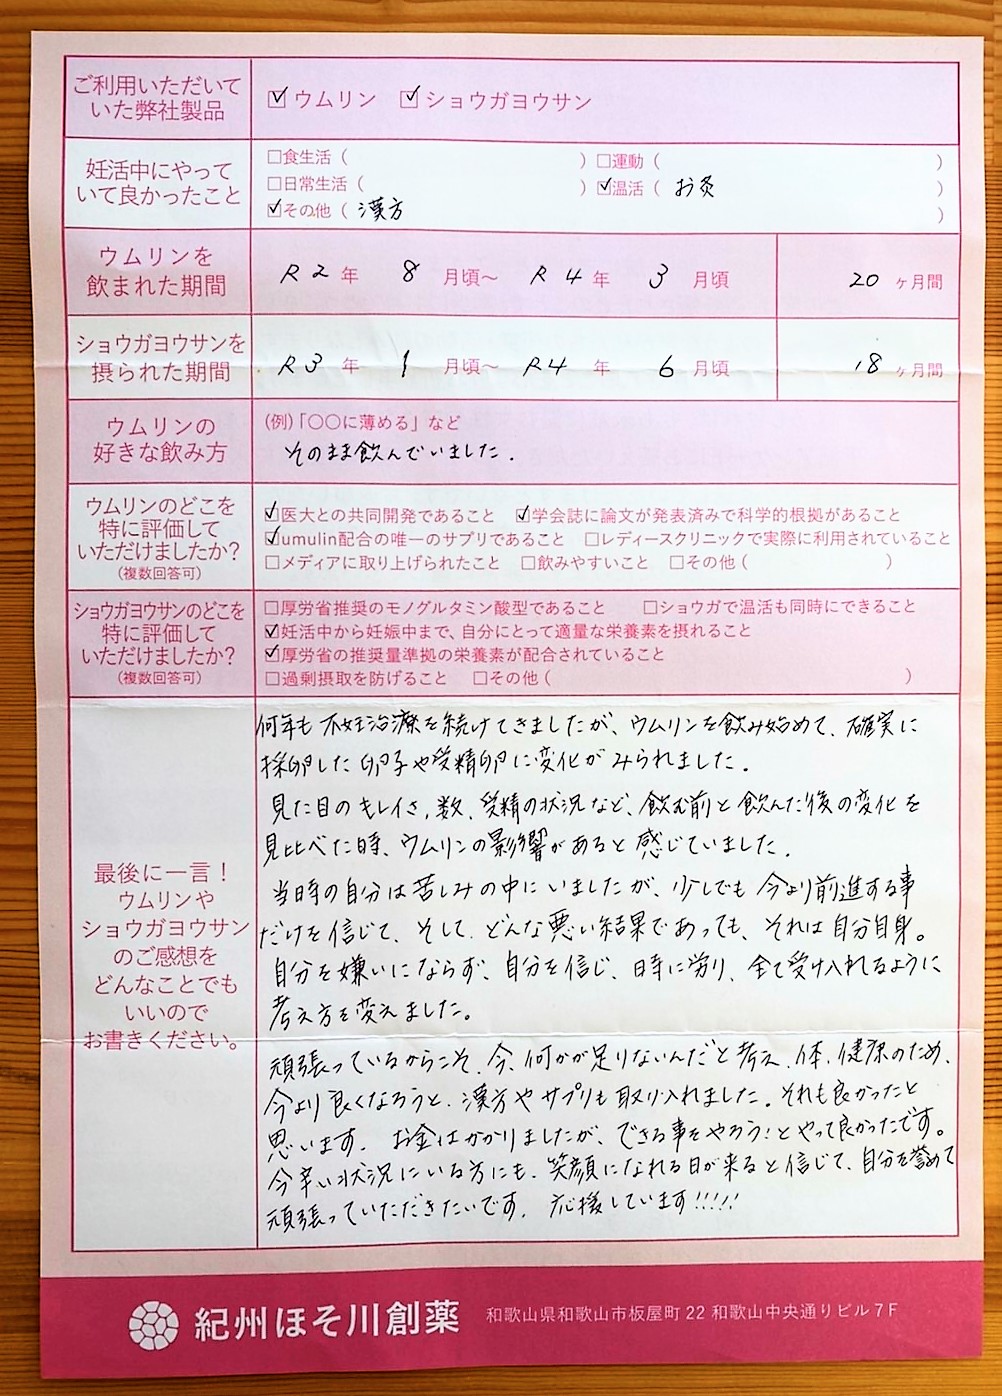 ご利用いただいて
いた弊社製品
☑ウムリン ☑ショウガヨウサン
妊活中にやって
いて良かったこと
□食生活（ ）□運動（ ）
□日常生活（ ）☑温活（ お灸 ）
☑その他（ 漢方 ）
ウムリンを
飲まれた期間
R2年 8月頃～R4年 3月頃 20ヶ月間
ショウガヨウサンを
摂られた期間
R3年 1月頃～R4年 6月頃 18ヶ月間
ウムリンの
好きな飲み方
(例)「〇〇に薄める」など
そのまま飲んでいました.
ウムリンのどこを
特に評価して
いただけましたか？
(複数回答可)
☑医大との共同開発であること ☑学会誌に論文が発表済みで科学的根拠があること
☑umulin配合の唯一のサプリであること □レディースクリニックで実際に利用されていること
□メディアに取り上げられたこと □飲みやすいこと □その他（ ）
ショウガヨウサンのどこを
特に評価して
いただけましたか？
(複数回答可)
□厚労省推奨のモノグルタミン酸型であること □ショウガで温活も同時にできること
☑妊活中から妊娠中まで、自分にとって適量な栄養素を摂れること
☑厚労省の推奨量準拠の栄養素が配合されていること
□過剰摂取を防げること □その他（ ）
最後に一言！
ウムリンや
ショウガヨウサン
のご感想を
どんなことでも
いいので
お書きください。
何年も不妊治療を続けてきましたが、ウムリンを飲み始めて、確実に
採卵した卵子や受精卵に変化がみられました.
見た目のキレイさ,数、受精の状況など、飲む前と飲んだ後の変化を
見比べた時、ウムリンの影響があると感じていました.
当時の自分は苦しみの中にいましたが、少しでも今より前進する事
だけを信じて、そして、どんな悪い結果であっても、それは自分自身。
自分を嫌いにならず、自分を信じ、時に労り、全て受け入れるように
考え方を変えました。
頑張っているからこそ、今、何かが足りないんだと考え、体、健康のため、
今より良くなろうと、漢方やサプリも取り入れました。それも良かったと
思います. お金はかかりましたが、できる事をやろう！とやって良かったです。
今辛い状況にいる方にも、笑顔になれる日が来ると信じて、自分を誉めて
頑張っていただきたいです. 応援しています!!!!!
紀州ほそ川創薬 和歌山県和歌山市板屋町 22 和歌山中央通りビル 7F